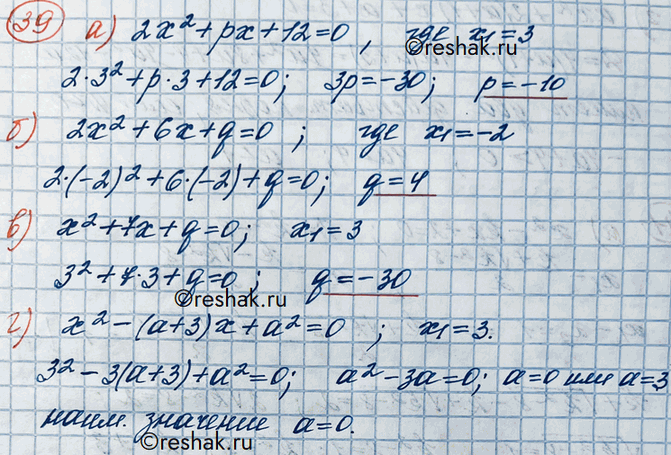 39 а) 2x² + px + 12 = 0, где x₁ = 3
2·3² + p·3 + 12 = 0; 3p = -30; p = -10
б) 2x² + 6x + q = 0; где x₁ = -2
2·(-2)² + 6·(-2) + q = 0; q = 4
в) x² + 7x + q = 0; x₁ = 3
3² + 7·3 + q = 0; q = -30
©reshak.ru
г) x² - (a+3)x + a² = 0; x₁ = 3.
3² - 3(a+3) + a² = 0; a² - 3a = 0; a = 0 или a = 3
наим. значение a = 0.
©reshak.ru